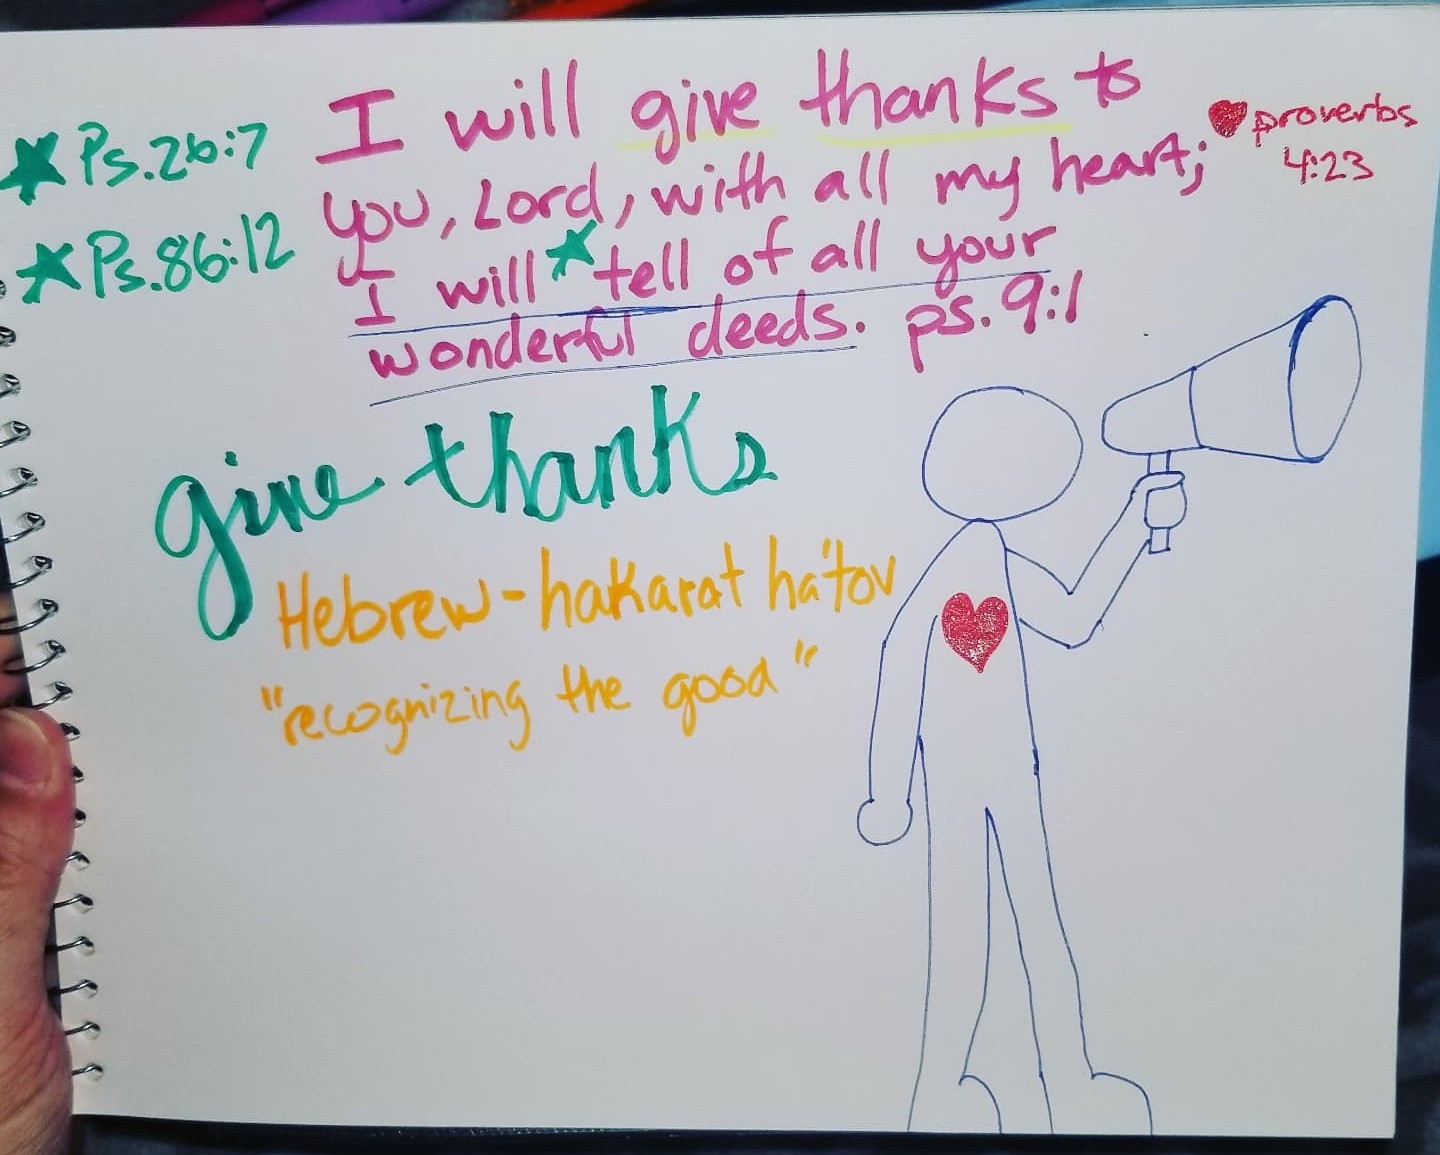 Ps.26:7
Ps.86:12
I will give thanks to
you, Lord, with all my heart;
I will tell of all your
wonderful deeds. ps. 9:1
proverbs
4:23
give thanks
Hebrew - hakarat ha'tov
"recognizing the good"